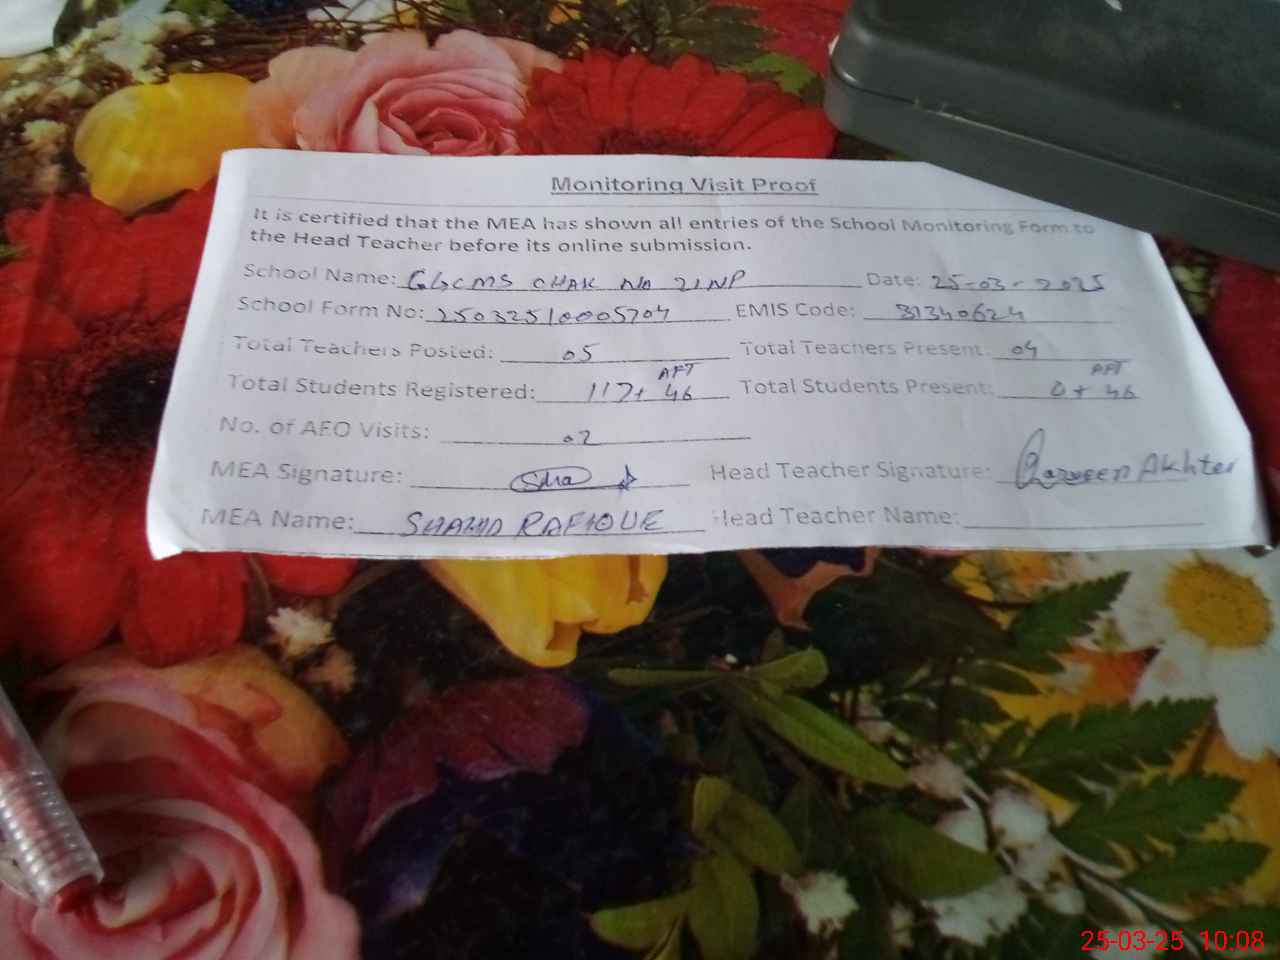 Monitoring Visit Proof
It is certified that the MEA has shown all entries of the School Monitoring Form to
the Head Teacher before its online submission.
School Name: GGCMS CHAK NO 21NP Date: 25-03-2025
School Form No: 25032510005704 EMIS Code: 31340624
Total Teachers Posted: 05 Total Teachers Present: 04
AFT AFT
Total Students Registered: 117+ 46 Total Students Present: 0 + 46
No. of AEO Visits: 02
MEA Signature: Head Teacher Signature: Parveen Akhter
MEA Name: SHAHID RAFIQUE Head Teacher Name:
25-03-25 10:08